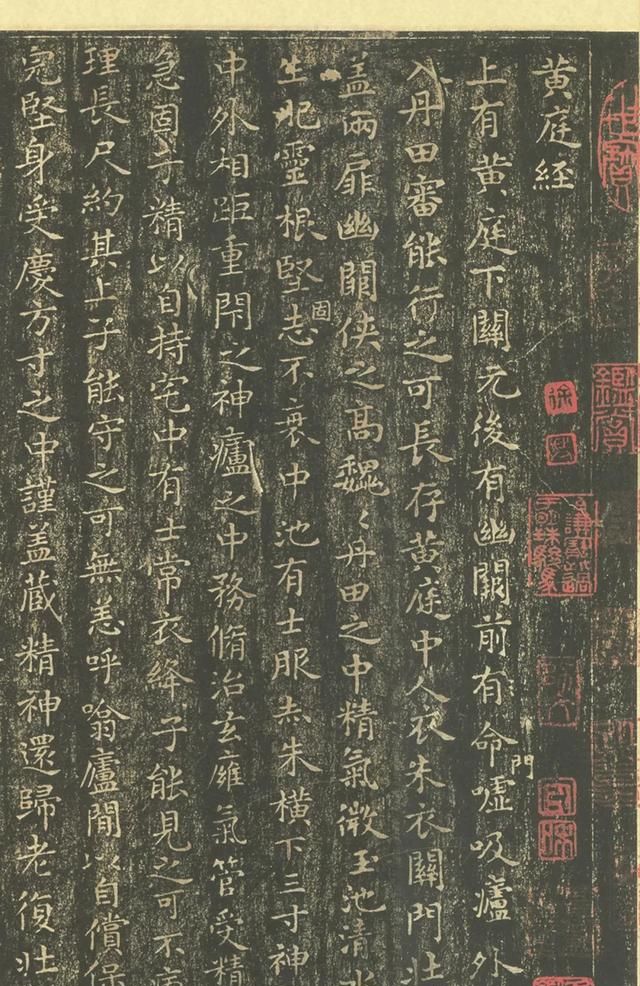 黄庭經
上有黄庭下關元後有幽闕前有命門噓吸廬外
入丹田審能行之可長存黄庭中人衣朱衣關門壮
盖兩扉幽闕侠之高巍々丹田之中精氣微玉池清水
生肥靈根堅固志不衰中池有士服赤朱横下三寸神
中外相距重閇之神廬之中務脩治玄癕氣管受精
急固子精以自持宅中有士常衣絳子能見之可不病
理長尺約其上子能守之可無恙呼噏廬間以自償保
完堅身受慶方寸之中謹盖藏精神還歸老復壮
徐
鑑賞